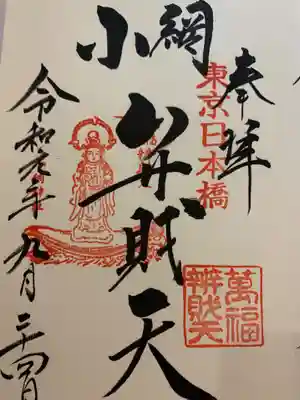 奉拝
東京日本橋
小網
弁財天
萬福
辨財天
令和元年九月二十四日